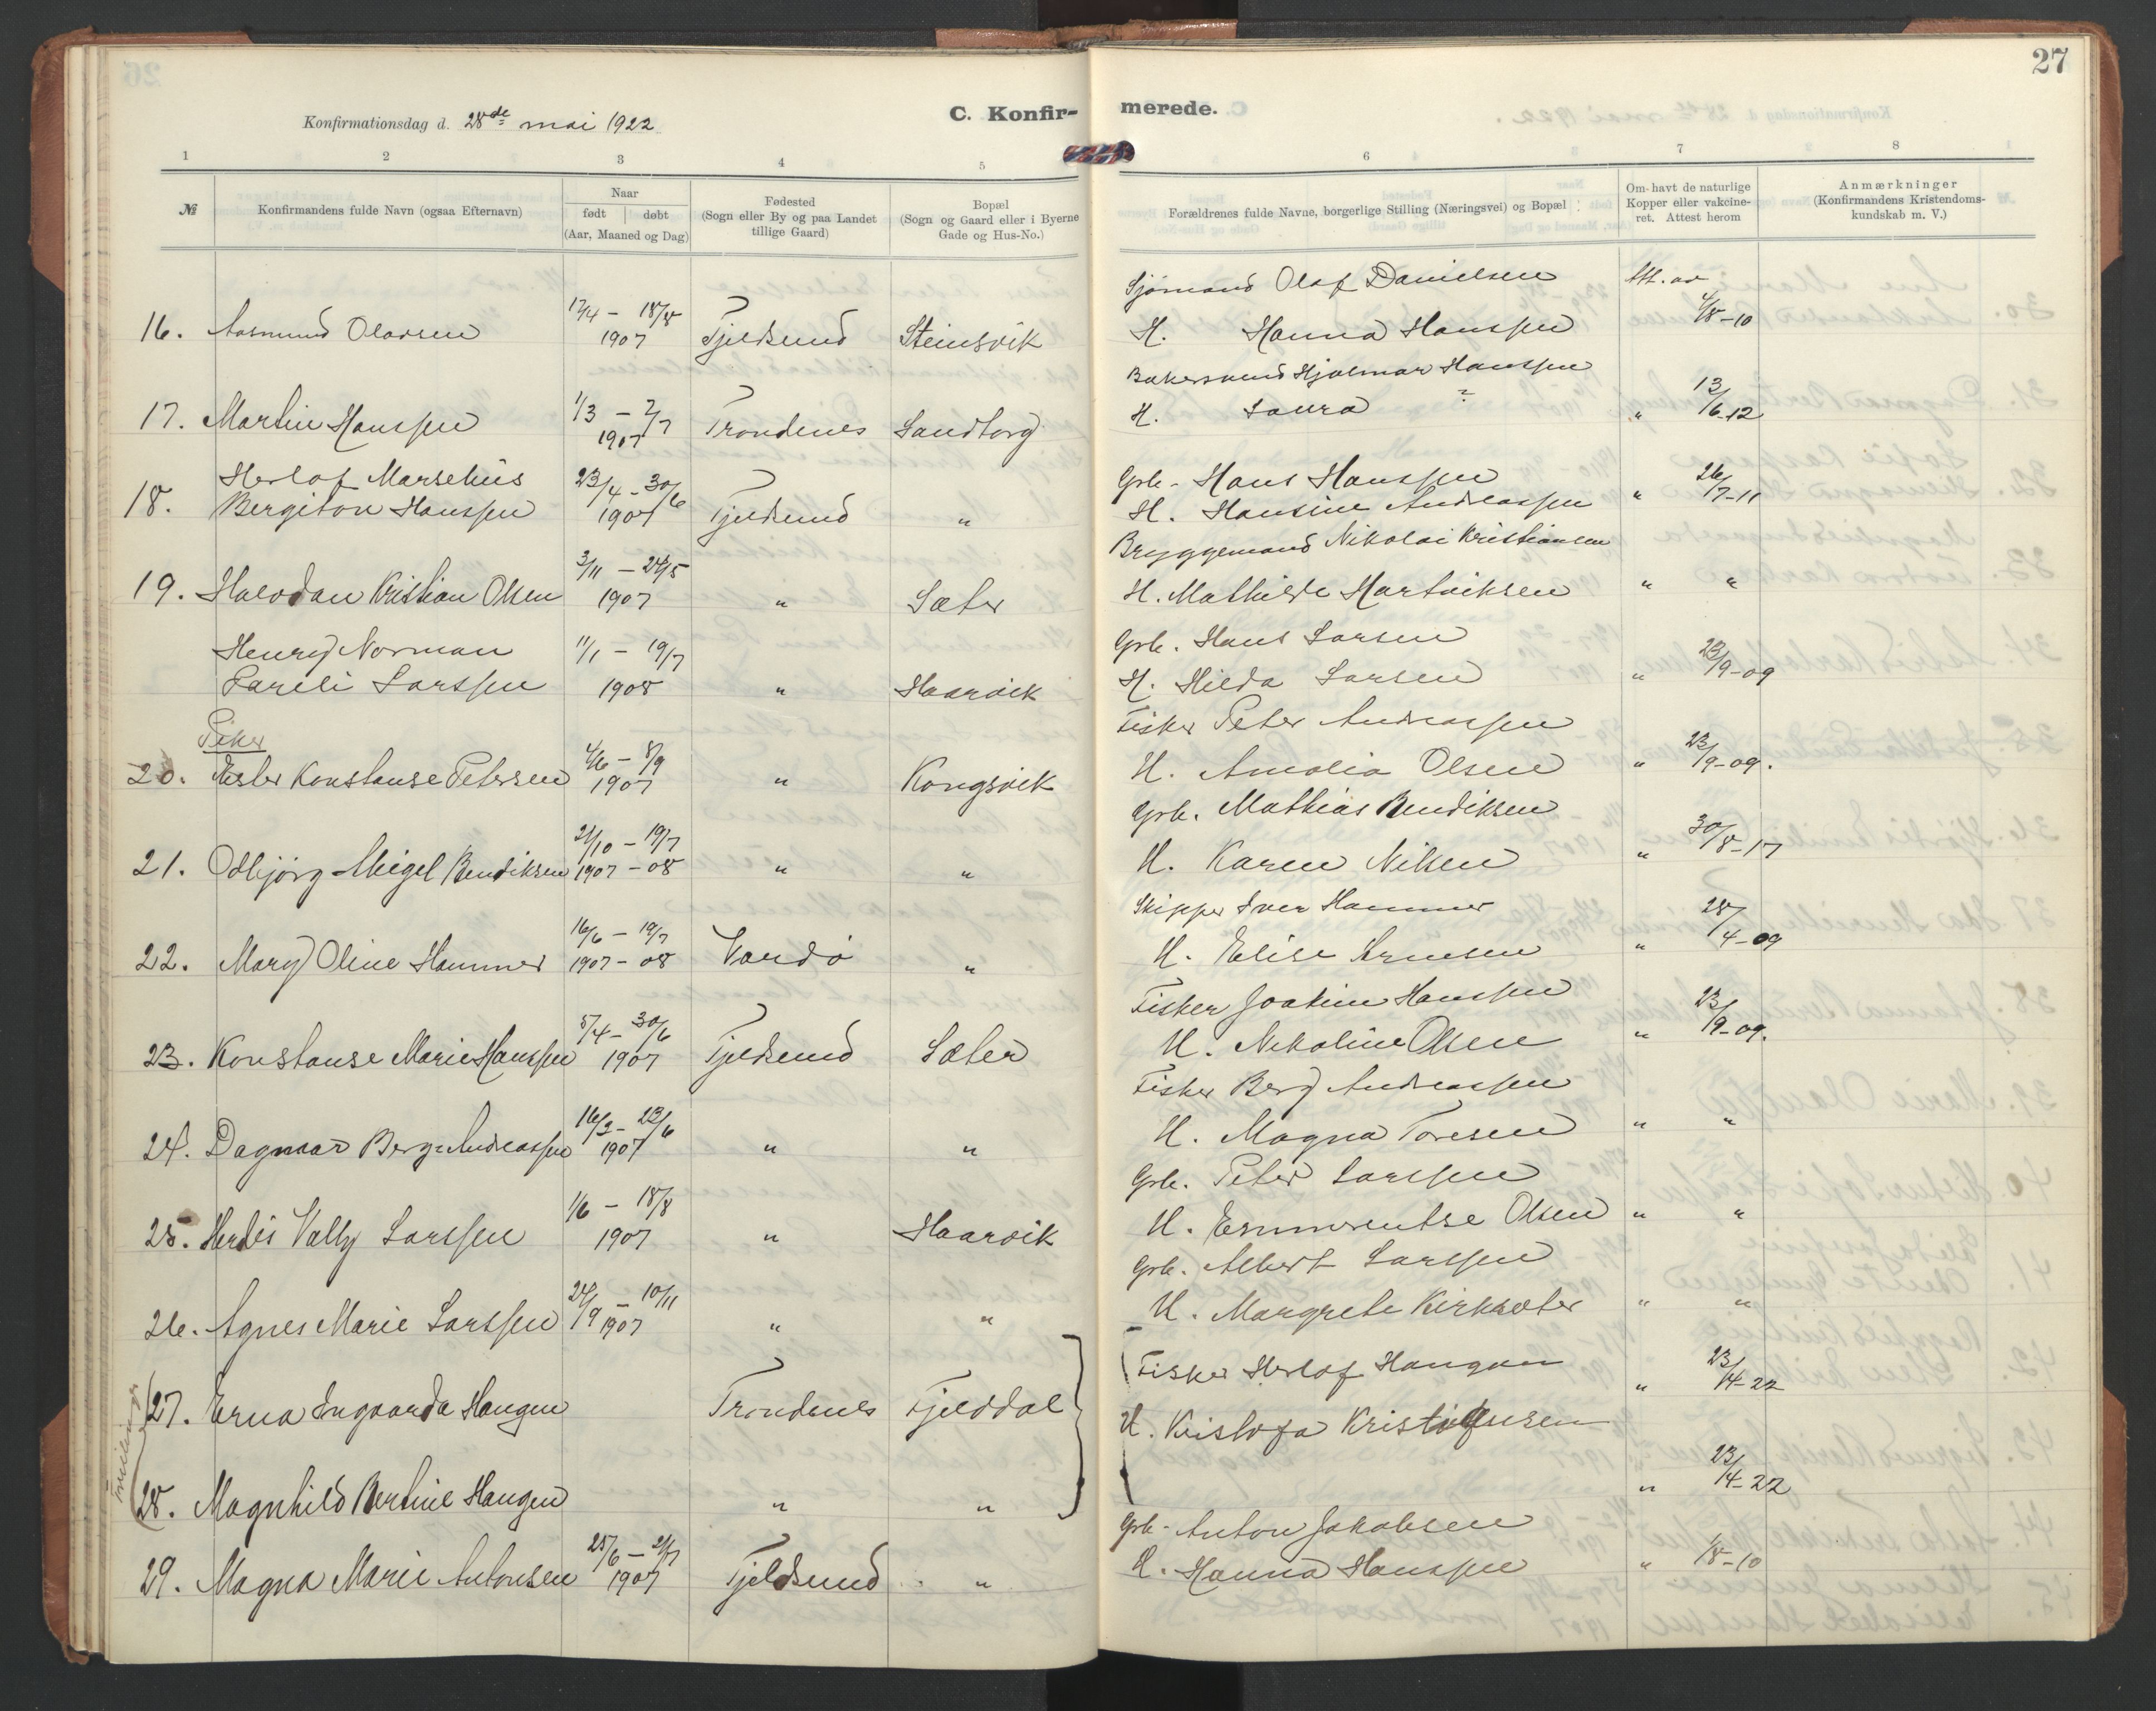 27
Konfirmationsdag d. 28de mai 1922
C. Konfir-
merede.
1 2 3 4 5 6 7 8
№
Konfirmandens fulde Navn (ogsaa Efternavn)
Naar
født | døbt
(Aar, Maaned og Dag)
Fødested
(Sogn eller By og paa Landet
tillige Gaard)
Bopæl
(Sogn og Gaard eller i Byerne
Gade og Hus-No.)
Forældrenes fulde Navne, borgerlige Stilling (Næringsvei) og Bopæl
Om havt de naturlige
Kopper eller vakcine-
ret. Attest herom
Anmærkninger
(Konfirmandens Kristendoms-
kundskab m. V.)
17/4 - 18/8 Sjømand Olaf Danielsen Att. av
16. Aasmund Olavsen 1907 Tjeldsund Steinsvik H. Hanna Hanssen 4/8-10
Bakersvend Hjalmar Hanssen
17. Martin Hanssen 1/3 - 7/7 Trondenes Sandtorg H. Laura ? " 13/6-12
1907
Herlof Marselius 23/4 - 30/6 Grb. Hans Hanssen
18. Bergiton Hanssen 1907 Tjeldsund " H. Hansine Andreassen " 26/7-11
3/11 - 24/5 Bryggemand Nikolai Kristiansen
19. Halvdan Kristian Olsen 1907 " Sæter H. Mathilde Hartviksen " "
Henry Norman 11/1 - 19/7 Grb. Hans Larsen
Pareli Larssen 1908 " Haarvik H. Hilda Larsen " 23/9-09
Piker Fisker Peter Andreassen
20. Ester Konstanse Petersen 4/6 - 8/9 1907 " Kongsvik H. Amalia Olsen " 23/9-09.
21/10 - 19/7 Grb. Mathias Bendiksen
21. Odbjørg Migel Bendiksen 1907 - 08 " " H. Karen Nilsen " 30/8-17
16/6 - 19/7 Skipper Iver Hammer
22. Mary Oline Hammer 1907 - 08 Vardø " H. Elise Arnesen " 28/4-09
5/4 - 30/6 Fisker Joakim Hanssen
23. Konstanse Marie Hanssen 1907 Tjeldsund Sæter H. Nikoline Olsen " 23/9-09.
16/3 - 23/6 Fisker Berg Andreassen
24. Dagmar Berg Andreassen 1907 " " H. Magna Toresen " "
1/6 - 18/8 Grb. Peter Larssen
25. Herdis Vally Larssen 1907 " Haarvik H. Emmerentse Olsen " "
24/9 - 10/11 Grb. Albert Larssen
26. Agnes Marie Larssen 1907 " " H. Margrete Kirksæter " "
Fisker Herlof Haugan 23/14-22
27. Erna Ingvarda Haugen Trondenes Fjelddal "
H. Kristofa Kristofersen
Tvillinger
28. Magnhild Bertine Haugen " " " 23/14-22
25/6 - 21/7 Grb. Anton Jakobsen
29. Magna Marie Antonsen 1907 Tjeldsund " H. Hanna Hanssen " 1/8-10